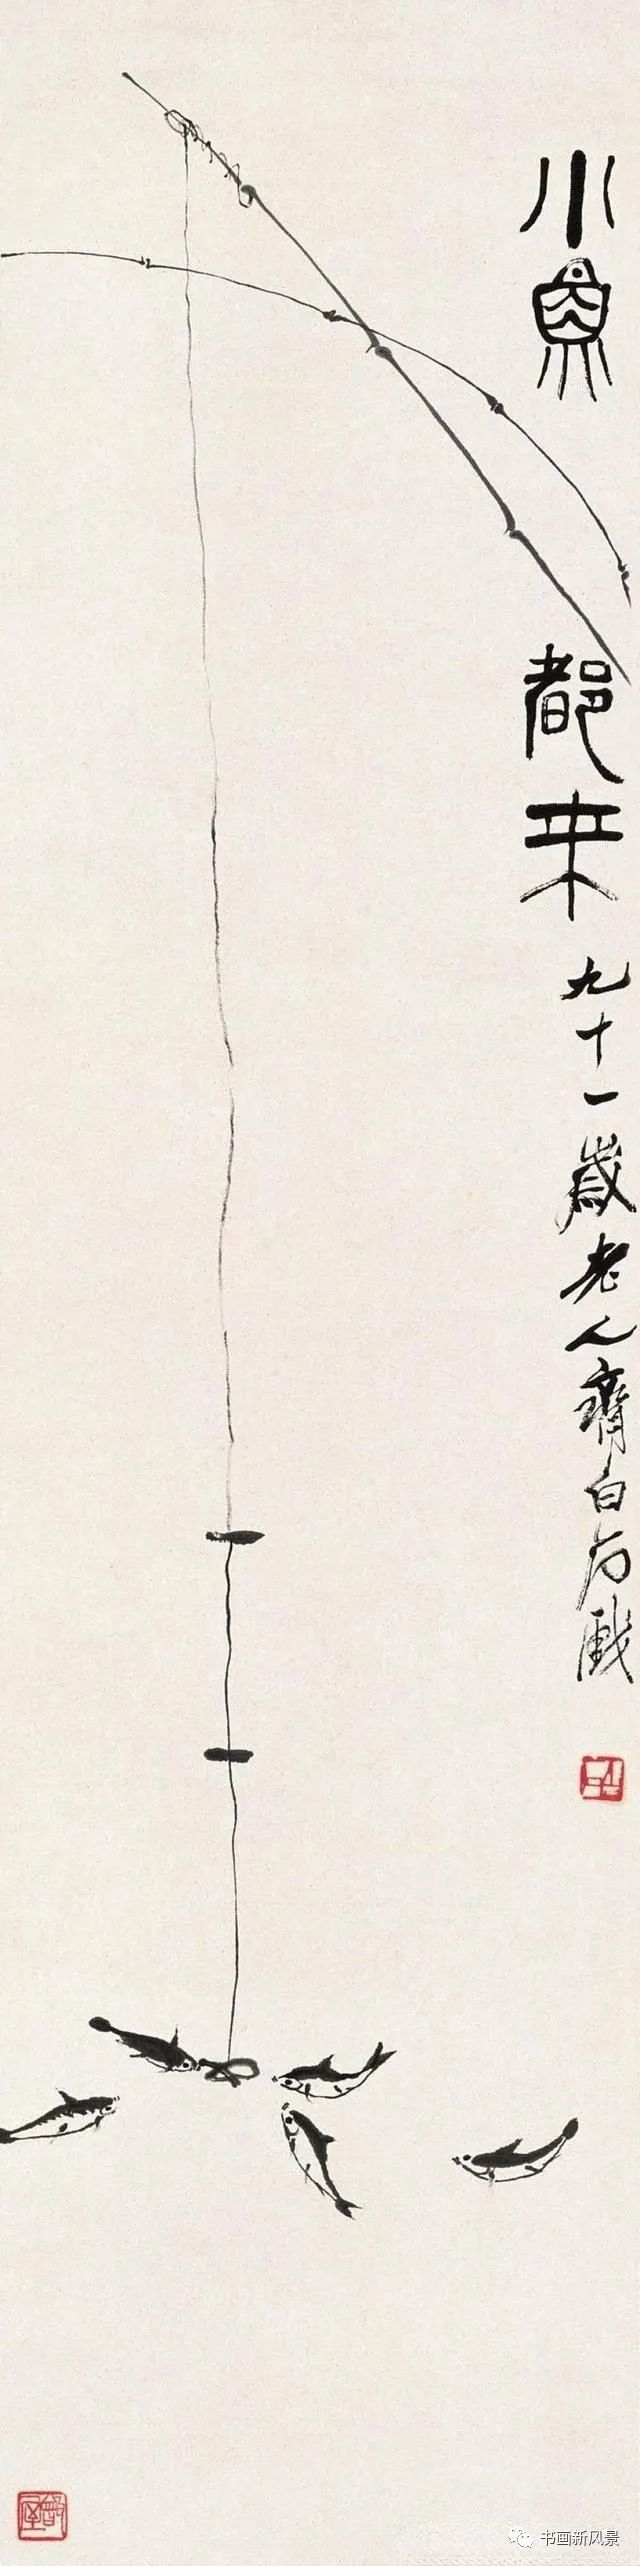 小魚都来
九十一歲老人齊白石戲
书画新风景